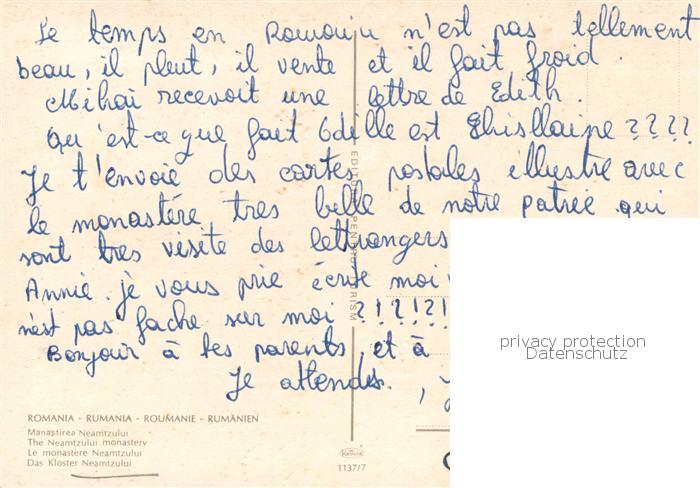 Le temps en Romaniu n'est pas tellement
beau, il pleut, il vente et il fait froid.
Mihai recevoit une lettre de Edith.
Qu'est-ce que fait Odille est Ghisllaine ????
Je t'envoie des cartes postales illustre avec
le monastére tres belle de notre patrie qui
sont tres visite des lettrangers
Annie. je vous prie écrit moi
n'est pas fache sur moi ?!?!?!
Bonjour à tes parents, et à
Je attendes.,
EDITURA
TURISM
privacy protection
Datenschutz
ROMANIA - RUMANIA - ROUMANIE - RUMÄNIEN
Mânăstirea Neamtzului
The Neamtzului monastery
Le monastère Neamtzului
Das Kloster Neamtzului
1137/7